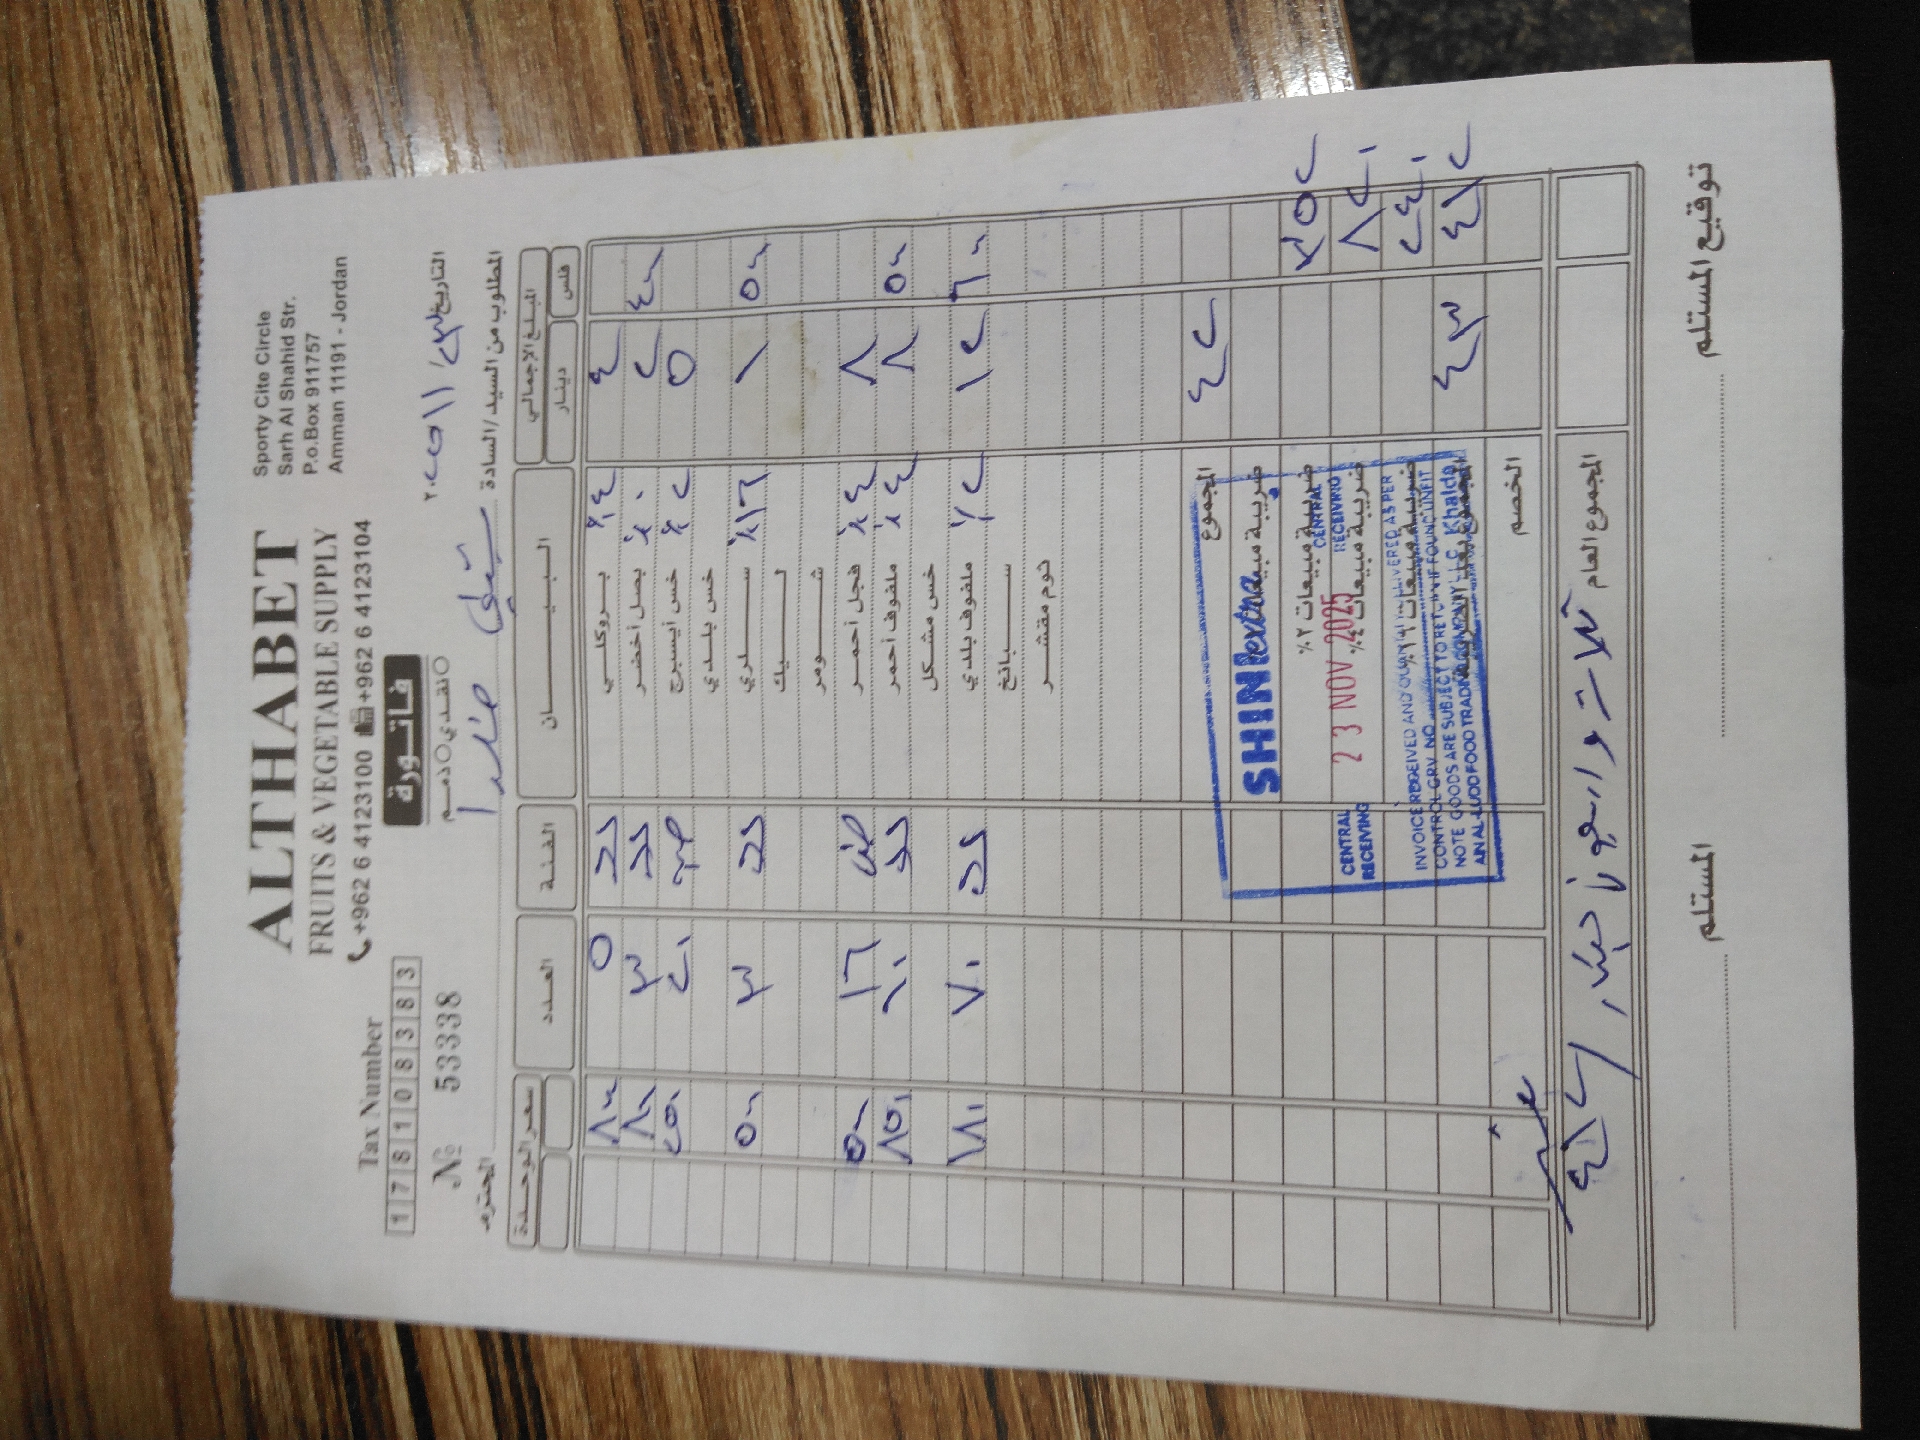 ALTHABET
FRUITS & VEGETABLE SUPPLY
+962 6 4123100 +962 6 4123104
Sporty Cite Circle
Sarh Al Shahid Str.
P.o.Box 911757
Amman 11191 - Jordan
Tax Number
178108383
№ 53338
فاتورة
نقدي ذمم
التاريخ ٢٣/١١/٢٠٢٥
المطلوب من السيد/السادة
المحترم
سعر الوحدة العدد الفئة البيــــــان المبلغ الإجمالي
دينار فلس
٨٠٠ ٥ بروكلي ٪٤ ٤
٨٠٠ ٣ بصل أخضر ٪٠ ٢ ٤٠٠
٢٥٠ ٢٠ خس أيسبرج ٪٢ ٥
خس بلدي
٥٠٠ ٣ سلري ٪١٦ ١ ٥٠٠
ليك
شومر
٥٠٠ ١٦ فجل أحمر ٪٤ ٨
٨٥٠ ١٠ ملفوف أحمر ٪٤ ٨ ٥٠٠
خس مشكل
١٨٠ ٧٠ ملفوف بلدي ٪٢ ١٢ ٦٠٠
سبانخ
ثوم مقشر
المجموع ٤٢
ضريبة مبيعات
ضريبة مبيعات ٢٪ ٣٥٢
ضريبة مبيعات ٤٪ ٨٢٠
ضريبة مبيعات ١٦٪ ٢٤٠
٤٣ ٤١٢
الخصم
المجموع العام ٤١٢/ ثلاث وأربعون دينار
SHINI extra
CENTRAL RECEIVING
23 NOV 2025
CENTRAL RECEIVING
INVOICE RECEIVED AND QUANTITY DELIVERED AS PER
CONTROL GRV NO
NOTE GOODS ARE SUBJECT TO RETURN IF FOUND UNFIT
AIN AL-LUDD FOOD TRADING COMPANY LLC Khalda
المستلم
توقيع المستلم